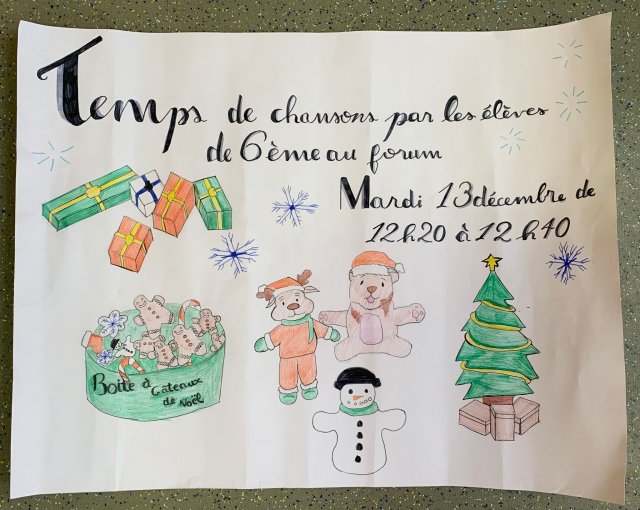 Temps de chansons par les élèves
de 6ème au forum
Mardi 13 décembre de
12h20 à 12h40
Boîte à
Gâteaux
de Noël